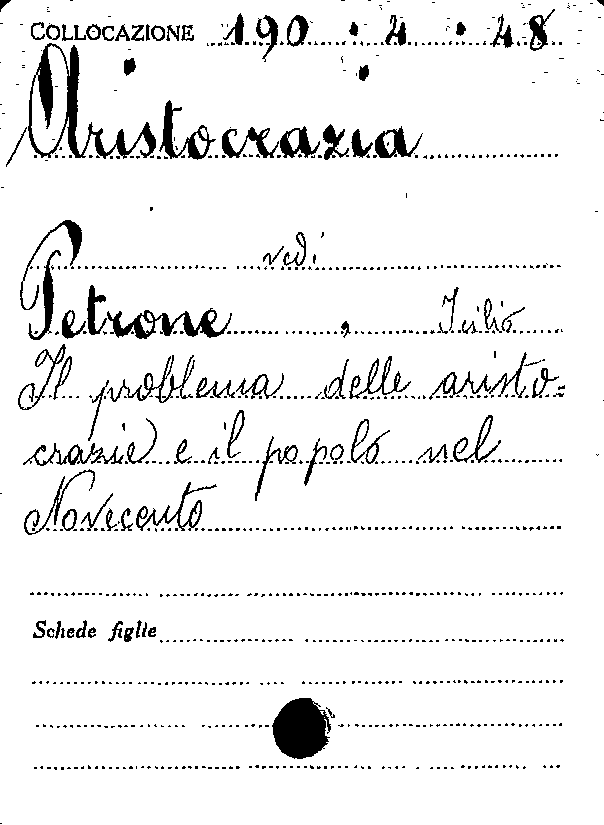 COLLOCAZIONE 190 . 4 . 48
Aristocrazia
vedi
Petrone, Icilio
Il problema delle aristo=
crazie e il popolo nel
Novecento
Schede figlie